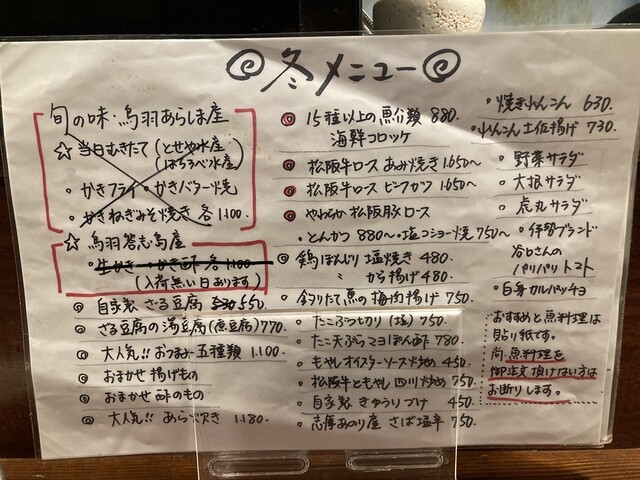 冬メニュー
旬の味・鳥羽あらしま産
☆当日むきたて(とせや水産
はちろべ水産)
・かきフライ・かきバター焼
・かきねぎみそ焼き 各1.100
☆鳥羽答志島産
・生かき・かき酢 各1.100
(入荷無い日あります)
自家製 ざる豆腐 550.
ざる豆腐の湯豆腐(煮豆腐)770
大人気!! おつまみ五種類 1.100
おまかせ 揚げもの
おまかせ 酢のもの
大人気!! あら炊き 1.180.
15種以上の魚介類 880.
海鮮コロッケ
松阪牛ロース あみ焼き 1.650〜
松阪牛ロース ビーフカツ 1.650〜
やわらか 松阪豚ロース
・とんかつ 880〜・塩コショー焼 750〜
鶏ぼんじり 塩焼き 480
〃 から揚げ 480
釣りたて魚の梅肉揚げ 750
たこぶつ切り(塩) 750.
たこ天ぷら マヨぽん酢 780
もやしオイスターソース炒め 450.
松阪牛ともやし 四川炒め 750
自家製 きゅうりづけ 450
志摩あのり産 さば塩辛 750.
・焼きれんこん 630.
・れんこん土佐揚げ 730.
・野菜サラダ
・大根サラダ
・虎丸サラダ
・伊勢ブランド
谷口さんの
パリパリトマト
・白身カルパッチョ
おすすめと魚料理は
貼り紙です。
尚、魚料理を
御注文頂けない方は
お断りします。